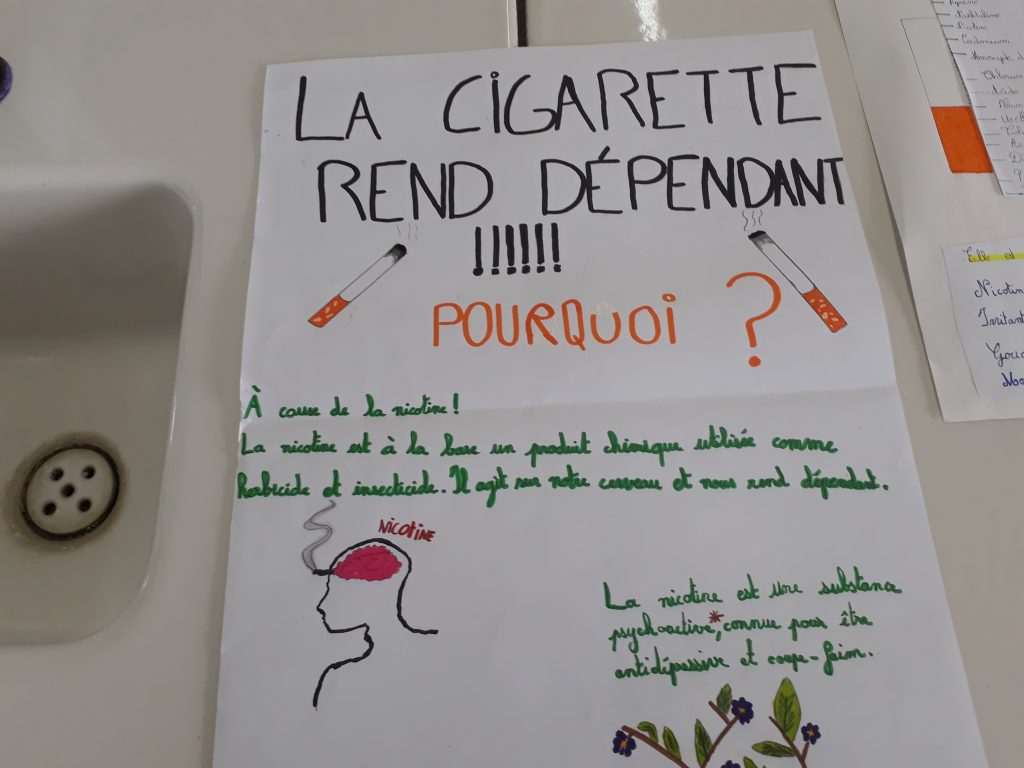 LA CIGARETTE
REND DÉPENDANT
!!!!!!
POURQUOI ?
À cause de la nicotine !
La nicotine est à la base un produit chimique utilisée comme
herbicide et insecticide. Il agit sur notre cerveau et nous rend dépendant.
NICOTINE
La nicotine est une substance
psychoactive*, connu pour être
antidépressive et coupe-faim.
Cadmium
Nicotin
Irritant